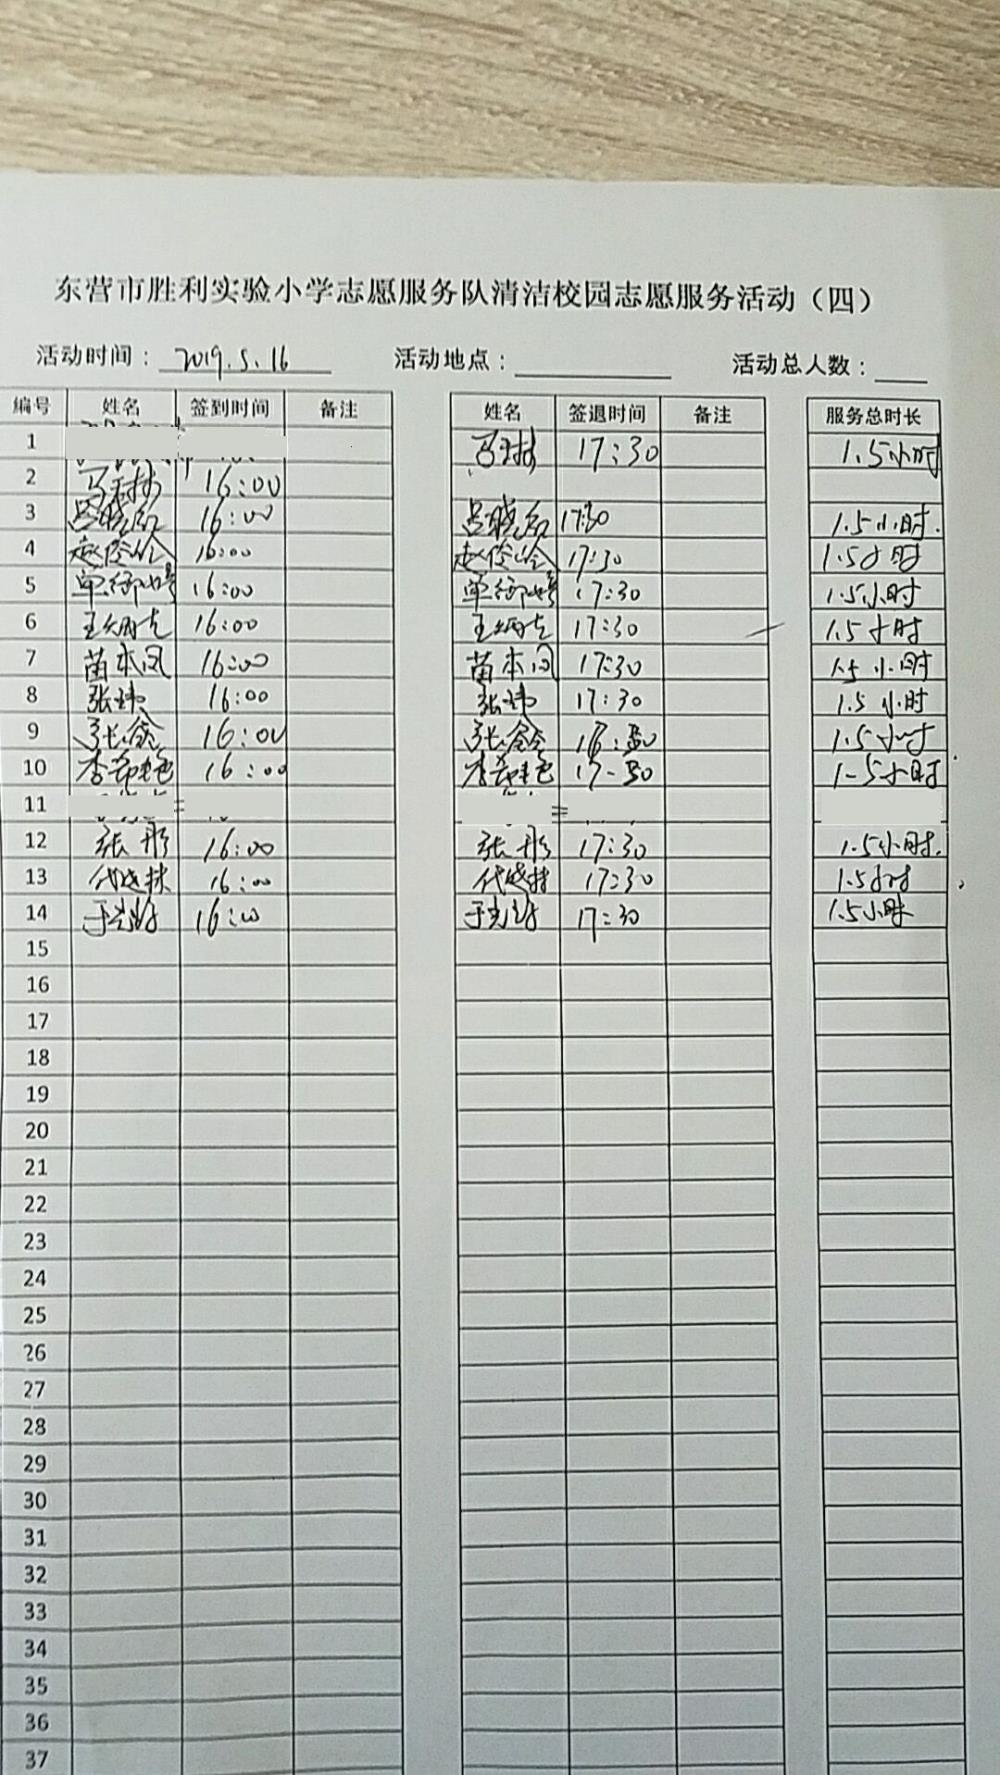 东营市胜利实验小学志愿服务队清洁校园志愿服务活动（四）
活动时间： 2019.5.16 活动地点： 活动总人数：
编号 姓名 签到时间 备注 姓名 签退时间 备注 服务总时长
1 17:30 1.5小时
2 16:00
3 吕 16:00 吕 17:30 1.5小时.
4 赵 16:00 赵 17:30 1.5小时
5 单 16:00 单 17:30 1.5小时
6 王炳 16:00 王炳 17:30 1.5小时
7 苗本凤 16:00 苗本凤 17:30 1.5小时
8 张 16:00 张 17:30 1.5小时
9 张 16:00 张 1.5小时
10 李 16:00 李 17-30 1-5小时
11
12 张彤 16:00 张彤 17:30 1.5小时.
13 代 16:00 代 17:30 1.5小时
14 于 16:00 于 17:30 1.5小时
15
16
17
18
19
20
21
22
23
24
25
26
27
28
29
30
31
32
33
34
35
36
37